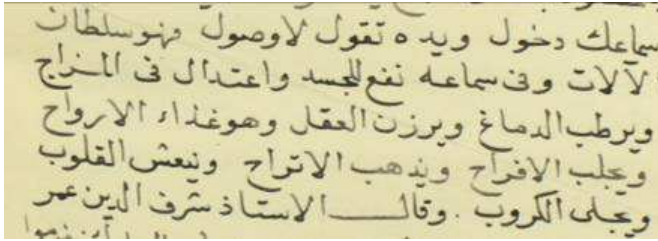 سماعك دخول ويده تقول لاوصول فهو سلطان
لالات وفى سماعه نفع للجسد واعتدال فى المزاج
ويرطب الدماغ ويرزن العقل وهو غذاء الارواح
ويجلب الافراح ويذهب الاتراح وينعش القلوب
ويجلى الكروب . وقال الاستاذ شرف الدين عمر